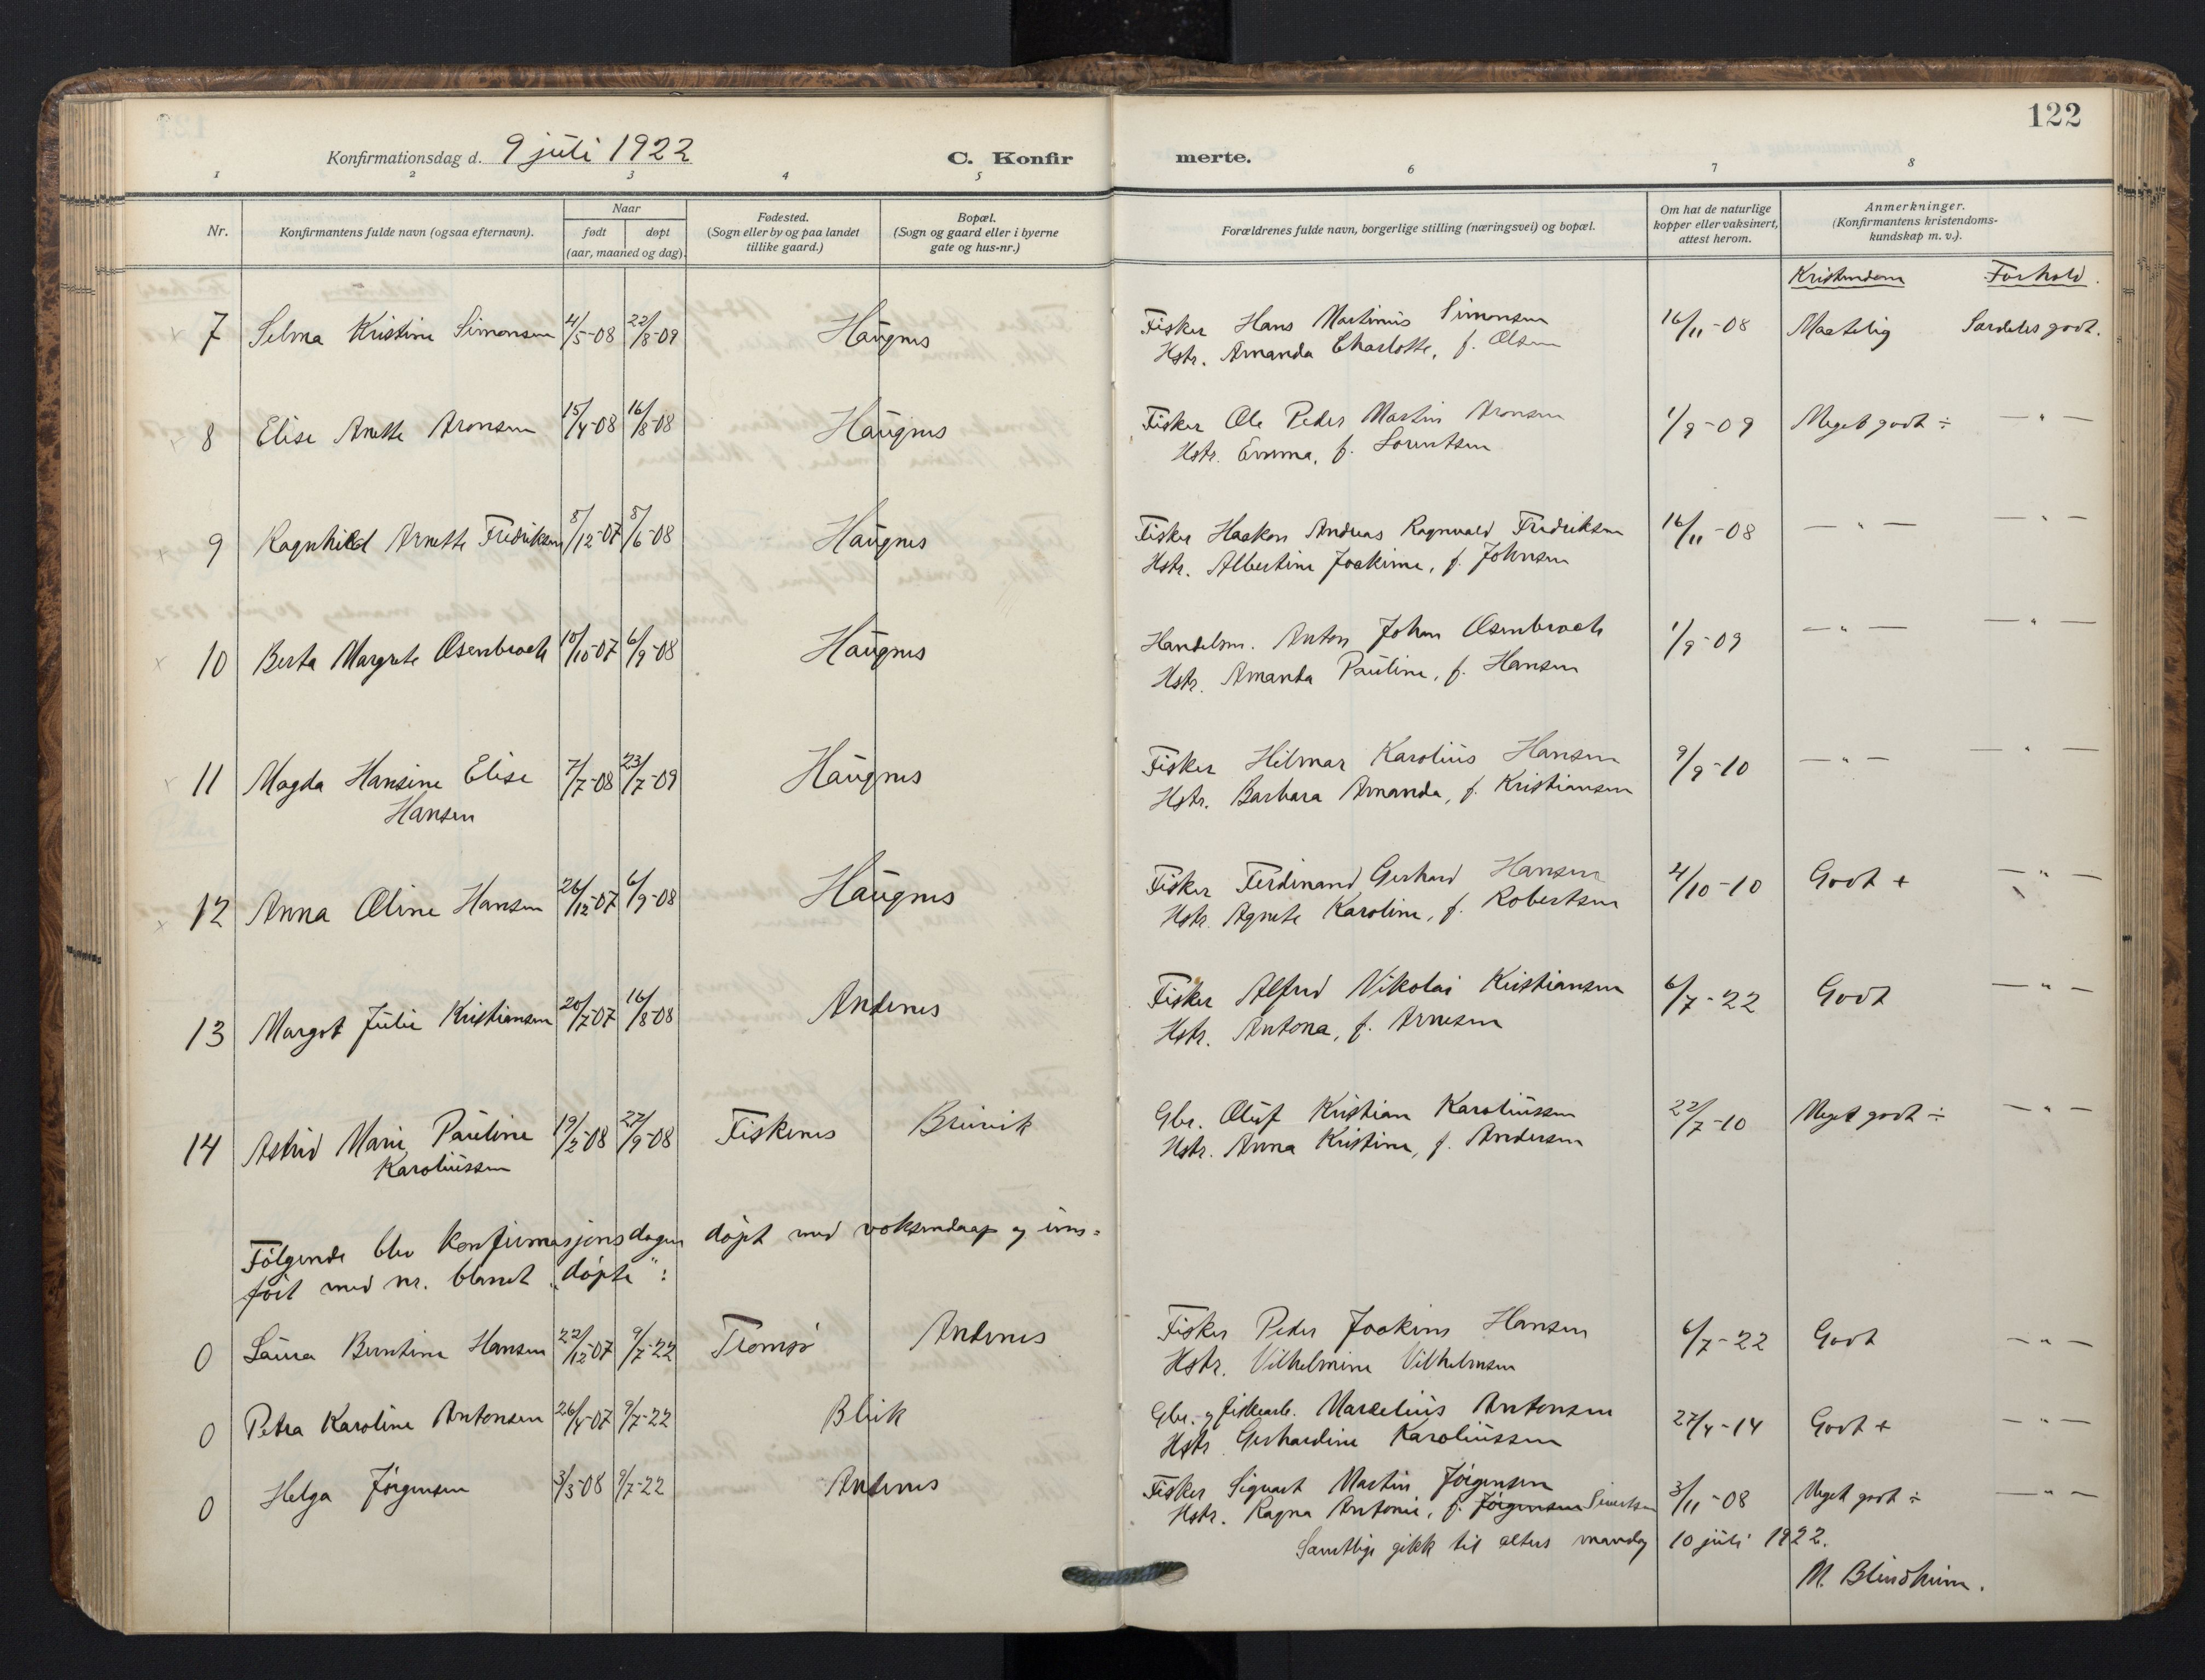 122
Konfirmationsdag d. 9 juli 1922
C. Konfirmerte.
1 2 3 4 5 6 7 8
Nr.
Konfirmantens fulde navn (ogsaa efternavn).
Naar
født
døpt
(aar, maaned og dag).
Fødested.
(Sogn eller by og paa landet
tillike gaard.)
Bopæl.
(Sogn og gaard eller i byerne
gate og hus-nr.)
Forældrenes fulde navn, borgerlige stilling (næringsvei) og bopæl.
Om hat de naturlige
kopper eller vaksinert,
attest herom.
Anmerkninger.
(Konfirmantens kristendoms-
kundskap m. v.).
Kristendom Forhold.
7 Selma Kristine Simonsen 4/5-08 22/8-09 Haugnes Fisker Hans Martinus Simonsen 16/11-08 Maatelig Særdeles godt.
Hstr. Amanda Charlotte, f. Olsen
8 Elise Anette Aronsen 15/4-08 16/8-08 Haugnes Fisker Ole Peder Martin Aronsen 1/9-09 Meget godt ÷ — " —
Hstr. Emma, f. Lorentsen
9 Ragnhild Arnette Fredriksen 8/12-07 8/6-08 Haugnes Fisker Haakon Andreas Ragnvald Fredriksen 16/11-08 — " — — " —
Hstr. Albertine Joakime, f. Johnsen
10 Berta Margrete Osenbroch 10/10-07 6/9-08 Haugnes Handelsm. Anton Johan Osenbroch 1/9-09 — " — — " —
Hstr. Amanda Pauline, f. Hansen
11 Magda Hansine Elise 7/7-08 23/7-09 Haugnes Fisker Hilmar Karolius Hansen 9/9-10 — " — — " —
Hansen Hstr. Barbara Amanda, f. Kristiansen
12 Anna Oline Hansen 26/12-07 6/9-08 Haugnes Fisker Ferdinand Gerhard Hansen 4/10-10 Godt + — " —
Hstr. Agnete Karoline, f. Robertsen
13 Margot Julie Kristiansen 20/7-07 16/8-08 Andenes Fisker Alfred Nikolai Kristiansen 6/7-22 Godt — " —
Hstr. Antona, f. Arnesen
14 Astrid Marie Pauline 19/2-08 27/9-08 Fiskenes Breivik Gbr. Oluf Kristian Karoliussen 22/7-10 Meget godt ÷ — " —
Karoliussen Hstr. Anna Kristine, f. Andersen
Følgende blev konfirmasjonsdagen døpt med voksendaap og inn-
ført med nr. blandt „døpte":
0 Laura Berntine Hansen 22/12-07 9/7-22 Tromsø Andenes Fisker Peder Joakim Hansen 6/7-22 Godt — " —
Hstr. Vilhelmine Vilhelmsen
0 Petra Karoline Antonsen 26/4-07 9/7-22 Bleik Gbr. og fiskearb. Marselius Antonsen 27/4-14 Godt + — " —
Hstr Gerhardine Karoliussen
0 Helga Jørgensen 3/3-08 9/7-22 Andenes Fisker Sigvart Martin Jørgensen 3/11-08 Meget godt ÷ — " —
Hstr. Ragna Antonie, f. Jørgensen Sivertsen
Samtlige gikk til alters mandag 10 juli 1922.
M. Blindheim.